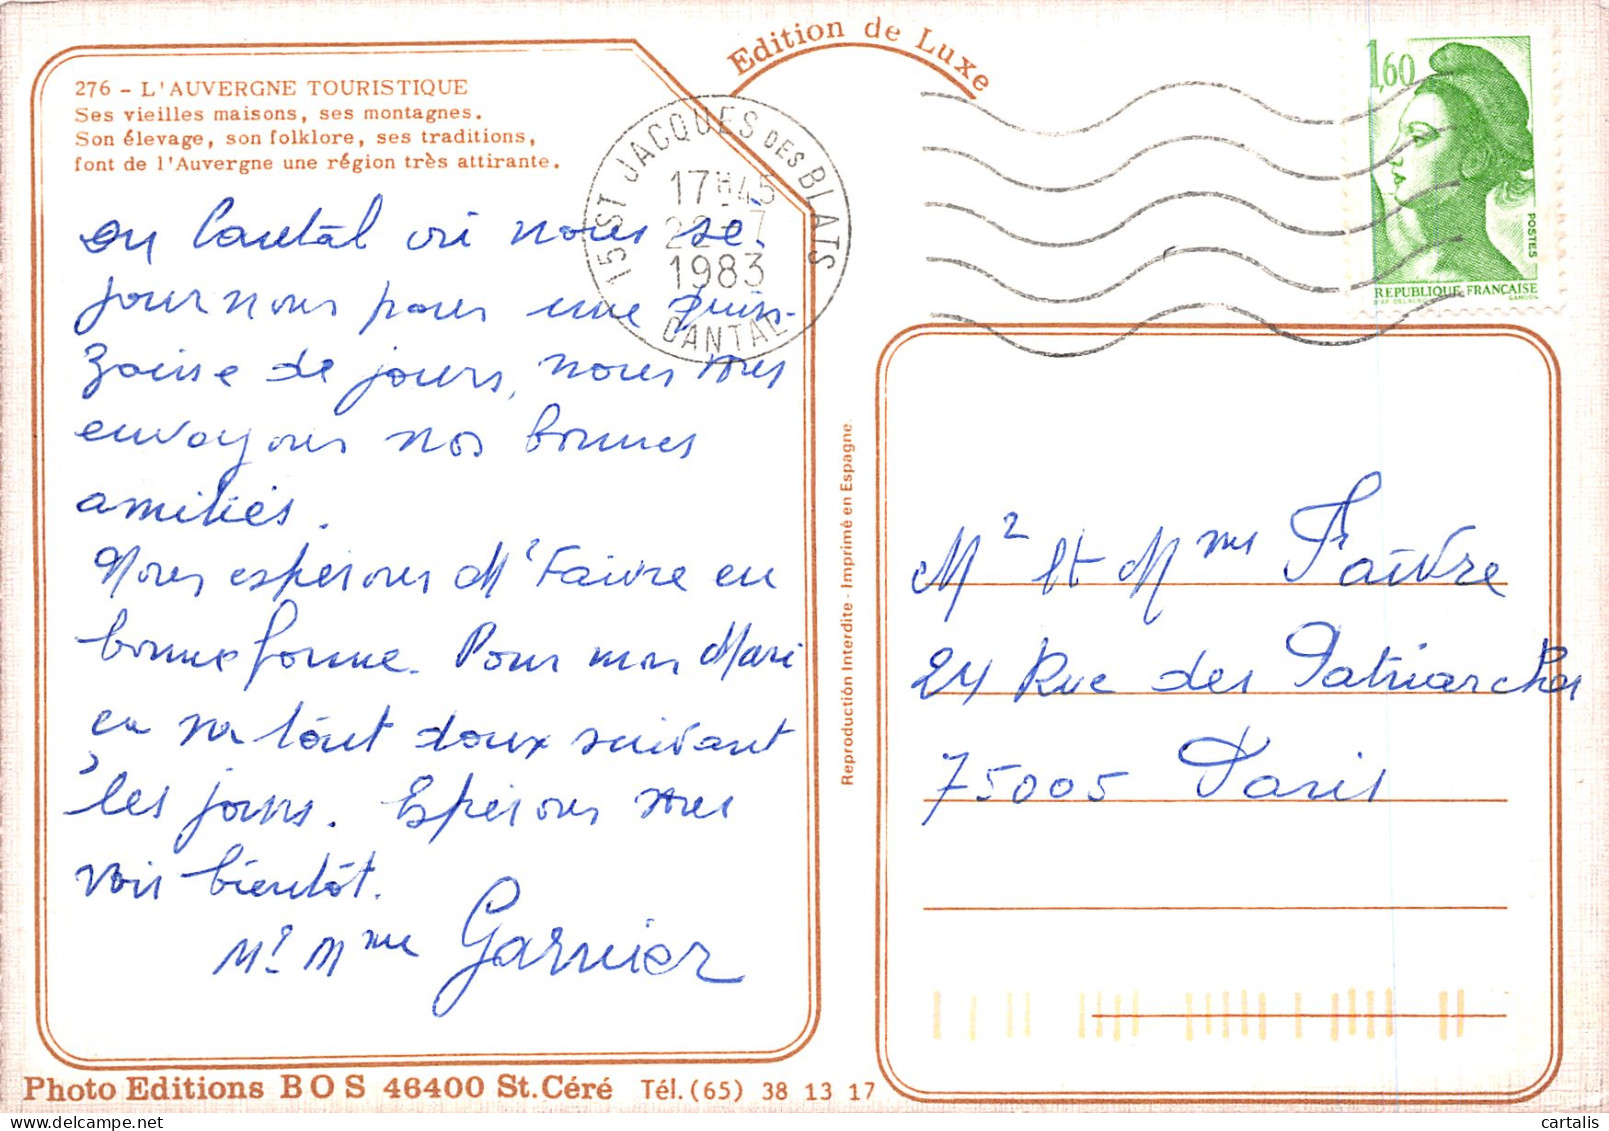 Edition de Luxe
276 - L'AUVERGNE TOURISTIQUE
Ses vieilles maisons, ses montagnes.
Son élevage, son folklore, ses traditions,
font de l'Auvergne une région très attirante.
15 ST JACQUES DES BLATS
17H45
22-7
1983
CANTAL
1,60
POSTES
REPUBLIQUE FRANÇAISE
D'AP. DELACROIX GANDON
au Cantal où nous sé-
journons pour une quin-
zaine de jours, nous vous
envoyons nos bonnes
amitiés.
Nous espérons Mr Faivre en
bonne forme. Pour mon Mari
ça va tout doux suivant
les jours. Espérons vous
voir bientôt.
Mr Mme Garnier
Reproduction Interdite - Imprimé en Espagne.
Mr et Mme Faivre
24 Rue des Patriarches
75005 Paris
Photo Editions BOS 46400 St.Céré Tél.(65) 38 13 17
cartalis